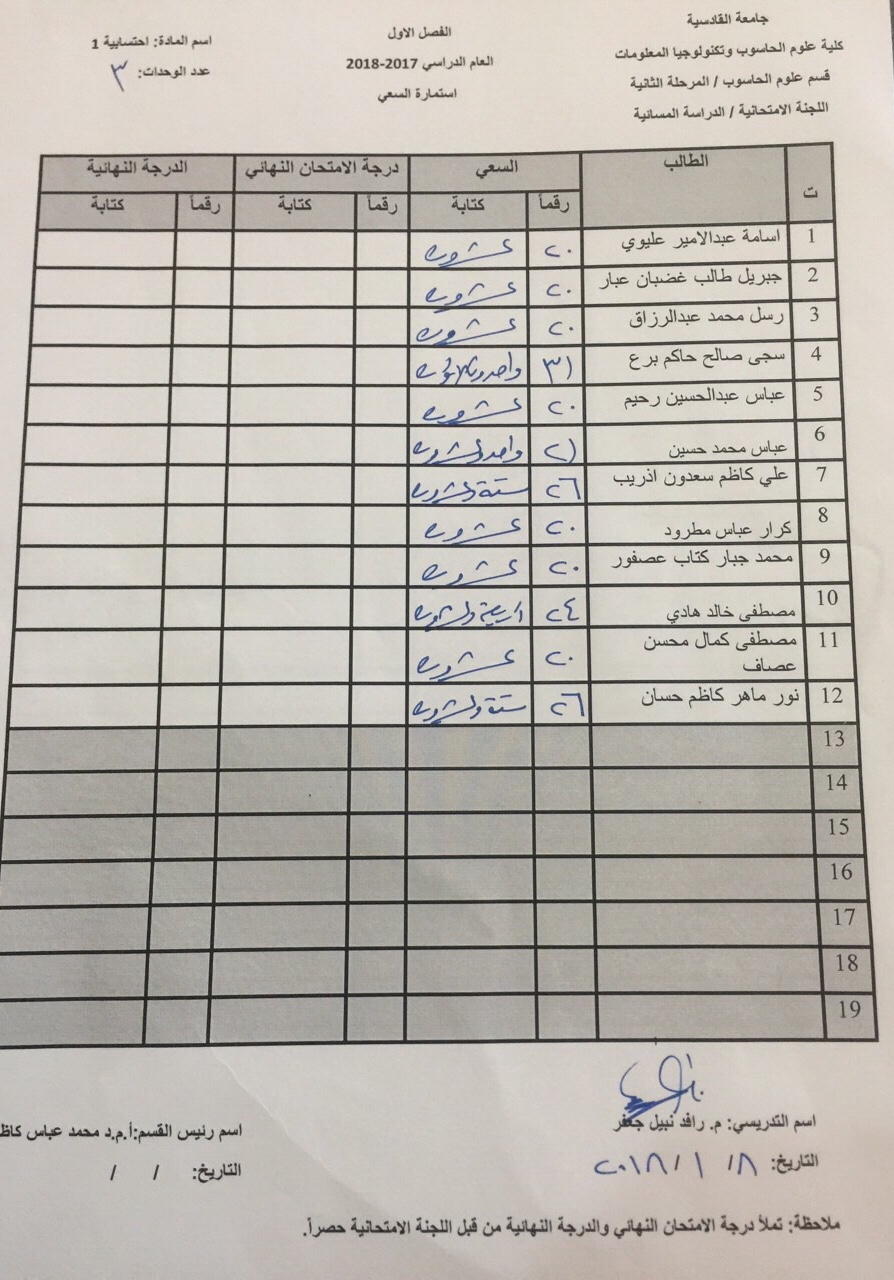 جامعة القادسية
كلية علوم الحاسوب وتكنولوجيا المعلومات
قسم علوم الحاسوب / المرحلة الثانية
اللجنة الامتحانية / الدراسة المسائية
الفصل الاول
العام الدراسي 2017-2018
استمارة السعي
اسم المادة: احتسابية 1
عدد الوحدات: ٣
ت الطالب السعي درجة الامتحان النهائي الدرجة النهائية
رقماً كتابة رقماً كتابة رقماً كتابة
1 اسامة عبدالامير عليوي ٢٠ عشرون
2 جبريل طالب غضبان عبار ٢٠ عشرون
3 رسل محمد عبدالرزاق ٢٠ عشرون
4 سجى صالح حاكم برع ٣١ واحد وثلاثون
5 عباس عبدالحسين رحيم ٢٠ عشرون
6 عباس محمد حسين ٢١ واحد وعشرون
7 علي كاظم سعدون اذريب ٢٦ ستة وعشرون
8 كرار عباس مطرود ٢٠ عشرون
9 محمد جبار كتاب عصفور ٢٠ عشرون
10 مصطفى خالد هادي ٢٤ اربعة وعشرون
11 مصطفى كمال محسن عصاف ٢٠ عشرون
12 نور ماهر كاظم حسان ٢٦ ستة وعشرون
13
14
15
16
17
18
19
اسم التدريسي: م. رافد نبيل جعفر
التاريخ: ٨ / ١ / ٢٠١٨
اسم رئيس القسم: أ.م.د محمد عباس كاظ
التاريخ: / /
ملاحظة: تملأ درجة الامتحان النهائي والدرجة النهائية من قبل اللجنة الامتحانية حصراً.